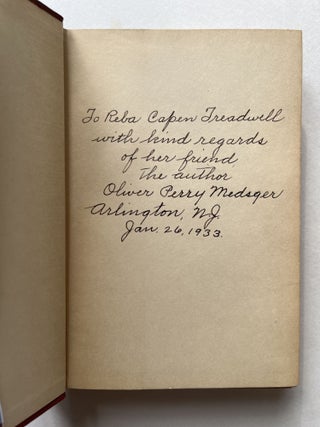 To Reba Capen Treadwell
with kind regards
of her friend
the author
Oliver Perry Medsger
Arlington, N.J.
Jan. 26, 1933.